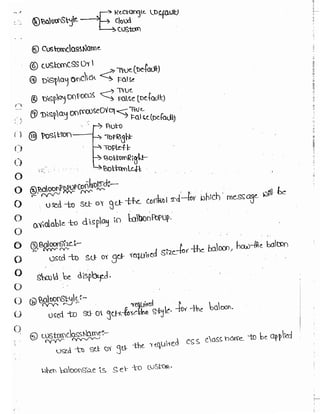 ④ BaloonStyle → Rectangle (Default)
→ Cloud
→ Custom
⑤ CustomclassName
⑥ CustomCSS Url
⑦ Display onclick → True (Default)
→ False
⑧ Display OnFocus → True
→ False (Default)
⑨ Display OnMouseOver → True
→ False (Default)
⑩ Position → Auto
→ TopRight
→ TopLeft
→ BottomRight
→ BottomLeft
① BaloonPopupControlId:-
used to set or get the control Id for which message will be
available to display in baloonPopup.
② BaloonSize:-
used to set or get required size for the baloon, how the baloon
should be displayed.
③ BaloonStyle:-
used to set or get required style for the baloon.
⑤ CustomclassName:-
used to set or get the required css class name to be applied
when baloonSize is set to custom.